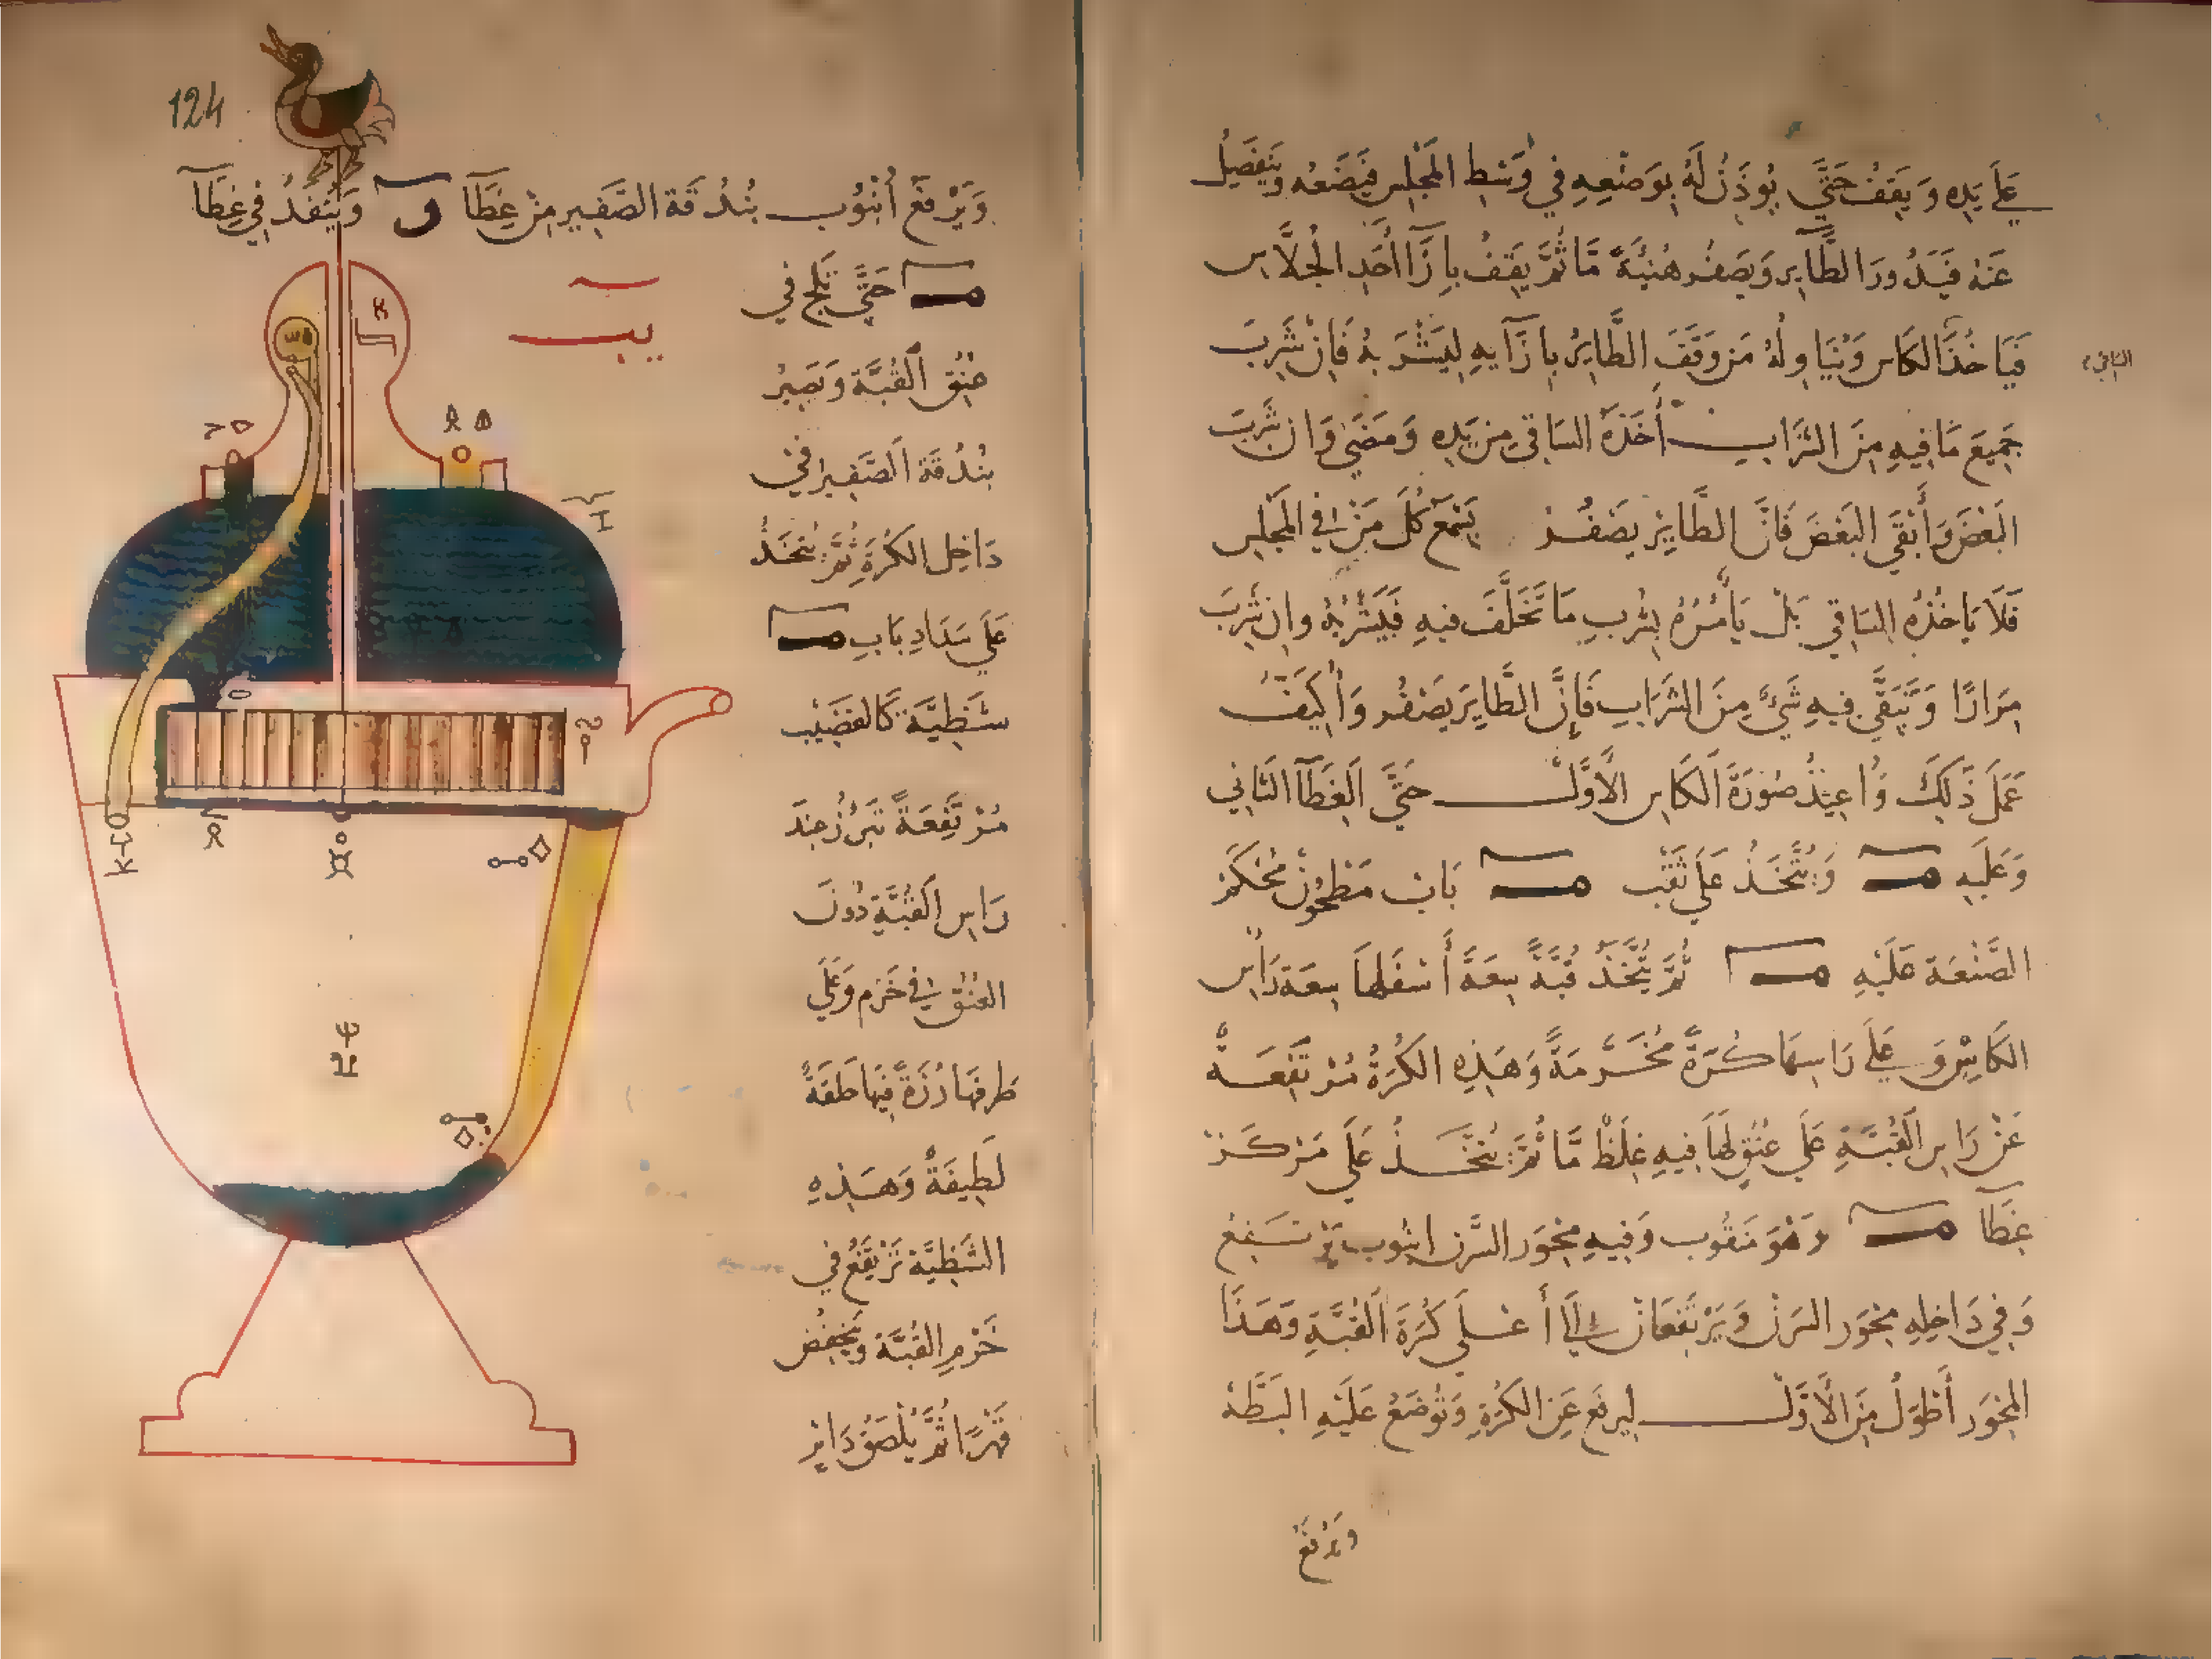 علي يده ويقف حتي يوذن له بوضعه في وسط المجلس فيضعه وينفصل
عنه فيدور الطآير ويصفر هنيهة ما ثم يقف بازآ احد الجلاس
فياخذ الكاس ويناوله من وقف الطآير بازآيه ليشربه فان شرب
الساقي
جميع ما فيه من الشراب أخذه الساقي من يده ومضي وان شرب
البعض وأبقي البعض فان الطاير يصفر يسمع كل من في المجلس
فلا ياخذه الساقي بل يأمره بشرب ما تخلف فيه فيشربه وان شرب
مرارا وتبقي فيه شيء من الشراب فإن الطاير يصفر وأكيف
عمل ذلك وأعيد صورة الكاس الأول حتي الغطآ الثاني
وعليه ويتخذ علي ثقب باب مطحون محكم
الصنعة عليه ثم يتخذ قبة سعة أسفلها سعة رأس
الكاس وعلي راسها كرة مخرمة وهذه الكرة مرتفعة
عن راس القبة علي عنق لها فيه غلظ ما ثم يتخذ علي مركز
غطآ وهو مثقوب وفيه محور السرن انبوب
وفي داخله محور السرن ويرتفعان الي أعلي كرة القبة وهذا
المحور أطول من الأول ليرتفع عن الكرة وتوضع عليه البطة
ويرفع
124
ويرفع أنبوب بندقة الصفير من غطآ و وينفذ في غطآ
حتي تلج في
عنق القبة وتصير
بندقة الصفير في
داخل الكرة ثم يتخذ
علي سداد باب
شظية كالقضيب
مرتفعة تبرز عند
راس القبة دون
العنق في خرم وعلي
طرفها رزة فيها حلقة
لطيفة وهذه
الشظية ترتفع في
خرم القبة وتنخفض
قهرا ثم يلصق داير